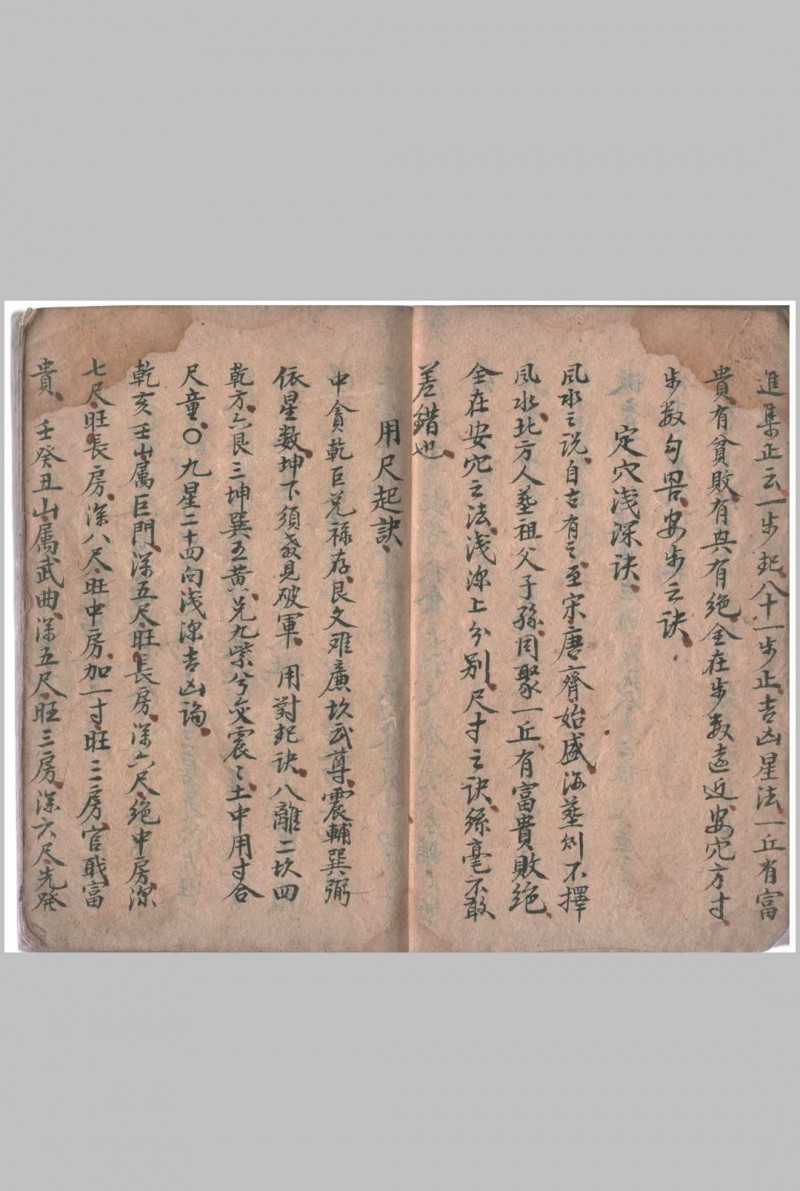 進集正云一步起八十一步止吉凶星法一丘有富
貴有貧敗有興有絕全在步數遠近安穴方寸
步数勾畧安步之訣
定穴浅深訣
風水之説自古有之至宋唐齊始盛海塟則不擇
風水北方人塟祖父子孫同聚一丘有富貴敗絕
全在安穴之法浅深上分别尺寸之訣絲毫不敢
差錯也
用尺起訣
中貪乾巨兌禄存艮文难廉坎武尊震輔巽弼
依星数坤下須發見破軍用對起訣八離二坎四
乾方六艮三坤巽五黄兌九紫兮交震々土中用寸合
尺童〇九星二十四向浅深吉凶論
乾亥壬山属巨門深五尺旺長房深六尺绝中房深
七尺旺長房深八尺旺中房加一寸旺二房官戢富
貴 壬癸丑山属武曲深五尺旺三房深六尺先発